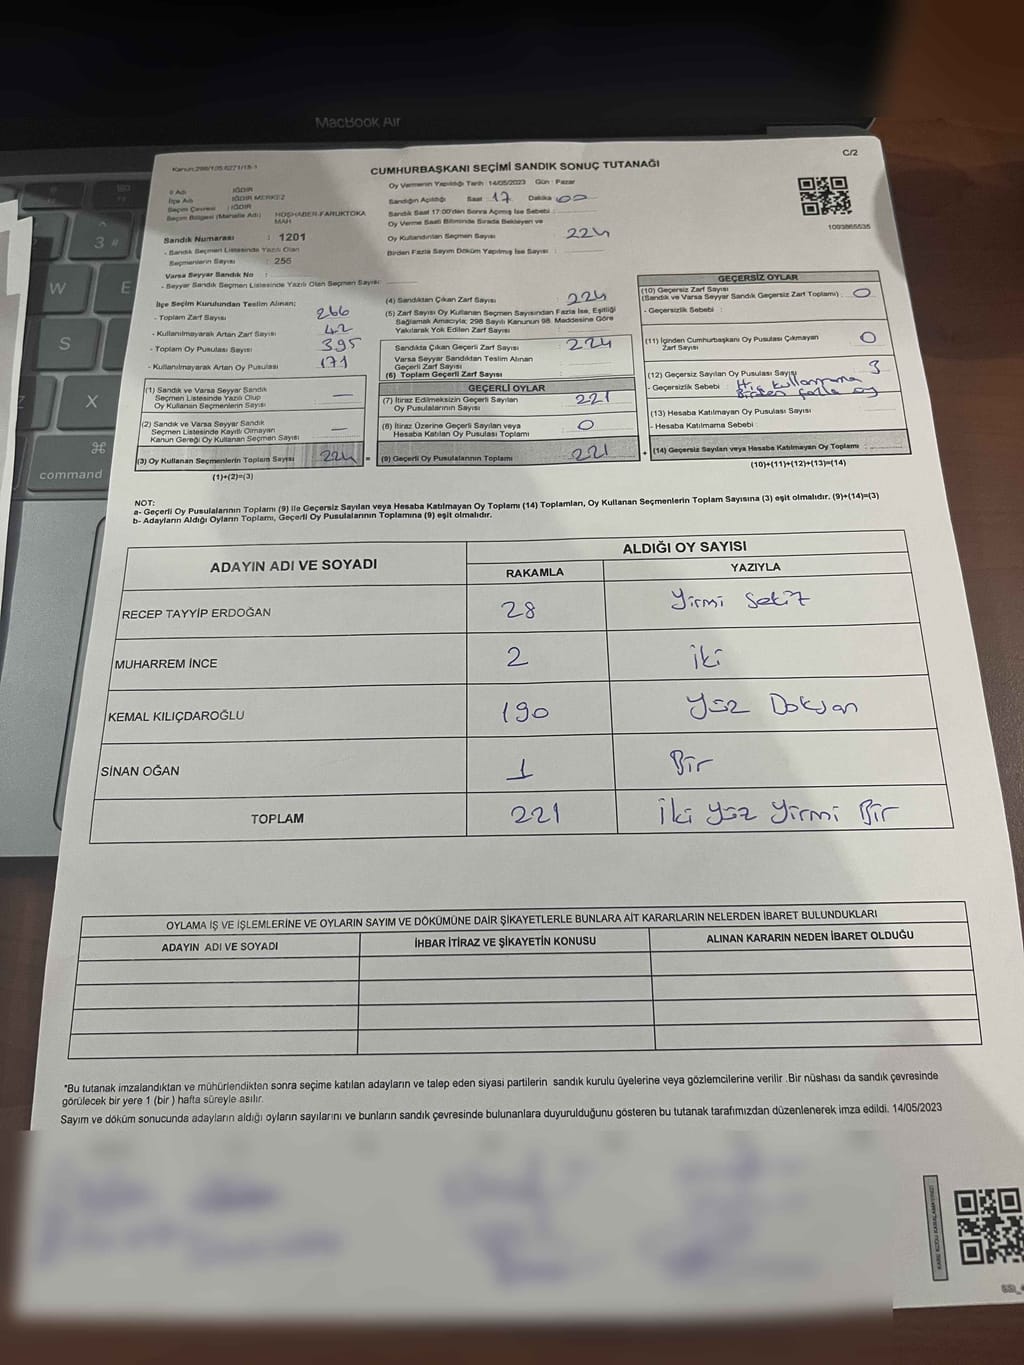 MacBook Air
C/2
Kanun:298/105.6271/15-1
CUMHURBAŞKANI SEÇİMİ SANDIK SONUÇ TUTANAĞI
İl Adı : IĞDIR
İlçe Adı : IĞDIR MERKEZ
Seçim Çevresi : IĞDIR
Seçim Bölgesi (Mahalle Adı) : HOŞHABER-FARUKTOKA MAH
Sandık Numarası : 1201
- Sandık Seçmen Listesinde Yazılı Olan
Seçmenlerin Sayısı : 256
Varsa Seyyar Sandık No :
- Seyyar Sandık Seçmen Listesinde Yazılı Olan Seçmen Sayısı:
Oy Vermenin Yapıldığı Tarih : 14/05/2023 Gün : Pazar
Sandığın Açıldığı Saat 17 Dakika 00
Sandık Saat 17:00'den Sonra Açmış İse Sebebi :
Oy Verme Saati Bitiminde Sırada Bekleyen ve
Oy Kullandırılan Seçmen Sayısı : 224
Birden Fazla Sayım Döküm Yapılmış İse Sayısı :
1093865535
İlçe Seçim Kurulundan Teslim Alınan;
- Toplam Zarf Sayısı 266
- Kullanılmayarak Artan Zarf Sayısı 42
- Toplam Oy Pusulası Sayısı 395
- Kullanılmayarak Artan Oy Pusulası 171
(1) Sandık ve Varsa Seyyar Sandık
Seçmen Listesinde Yazılı Olup
Oy Kullanan Seçmenlerin Sayısı —
(2) Sandık ve Varsa Seyyar Sandık
Seçmen Listesinde Kayıtlı Olmayan
Kanun Gereği Oy Kullanan Seçmen Sayısı —
(3) Oy Kullanan Seçmenlerin Toplam Sayısı 224 =
(1)+(2)=(3)
(4) Sandıktan Çıkan Zarf Sayısı : 224
(5) Zarf Sayısı Oy Kullanan Seçmen Sayısından Fazla İse, Eşitliği
Sağlamak Amacıyla; 298 Sayılı Kanunun 98. Maddesine Göre
Yakılarak Yok Edilen Zarf Sayısı :
Sandıkta Çıkan Geçerli Zarf Sayısı : 224
Varsa Seyyar Sandıktan Teslim Alınan
Geçerli Zarf Sayısı :
(6) Toplam Geçerli Zarf Sayısı
GEÇERLİ OYLAR
(7) İtiraz Edilmeksizin Geçerli Sayılan
Oy Pusulalarının Sayısı : 221
(8) İtiraz Üzerine Geçerli Sayılan veya
Hesaba Katılan Oy Pusulası Toplamı : 0
(9) Geçerli Oy Pusulalarının Toplamı : 221 +
GEÇERSİZ OYLAR
(10) Geçersiz Zarf Sayısı
(Sandık ve Varsa Seyyar Sandık Geçersiz Zarf Toplamı) : 0
- Geçersizlik Sebebi :
(11) İçinden Cumhurbaşkanı Oy Pusulası Çıkmayan
Zarf Sayısı 0
(12) Geçersiz Sayılan Oy Pusulası Sayısı 3
- Geçersizlik Sebebi : Hiç kullanmama
Birden fazla oy
(13) Hesaba Katılmayan Oy Pusulası Sayısı
- Hesaba Katılmama Sebebi :
(14) Geçersiz Sayılan veya Hesaba Katılmayan Oy Toplamı
(10)+(11)+(12)+(13)=(14)
NOT:
a- Geçerli Oy Pusulalarının Toplamı (9) ile Geçersiz Sayılan veya Hesaba Katılmayan Oy Toplamı (14) Toplamları, Oy Kullanan Seçmenlerin Toplam Sayısına (3) eşit olmalıdır. (9)+(14)=(3)
b- Adayların Aldığı Oyların Toplamı, Geçerli Oy Pusulalarının Toplamına (9) eşit olmalıdır.
ADAYIN ADI VE SOYADI
ALDIĞI OY SAYISI
RAKAMLA YAZIYLA
RECEP TAYYİP ERDOĞAN 28 Yirmi Sekiz
MUHARREM İNCE 2 İki
KEMAL KILIÇDAROĞLU 190 Yüz Doksan
SİNAN OĞAN 1 Bir
TOPLAM 221 İki yüz Yirmi Bir
OYLAMA İŞ VE İŞLEMLERİNE VE OYLARIN SAYIM VE DÖKÜMÜNE DAİR ŞİKAYETLERLE BUNLARA AİT KARARLARIN NELERDEN İBARET BULUNDUKLARI
ADAYIN ADI VE SOYADI İHBAR İTİRAZ VE ŞİKAYETİN KONUSU ALINAN KARARIN NEDEN İBARET OLDUĞU
*Bu tutanak imzalandıktan ve mühürlendikten sonra seçime katılan adayların ve talep eden siyasi partilerin sandık kurulu üyelerine veya gözlemcilerine verilir .Bir nüshası da sandık çevresinde
görülecek bir yere 1 (bir ) hafta süreyle asılır.
Sayım ve döküm sonucunda adayların aldığı oyların sayılarını ve bunların sandık çevresinde bulunanlara duyurulduğunu gösteren bu tutanak tarafımızdan düzenlenerek imza edildi. 14/05/2023
W
E
3 #
S
X
⌘
command